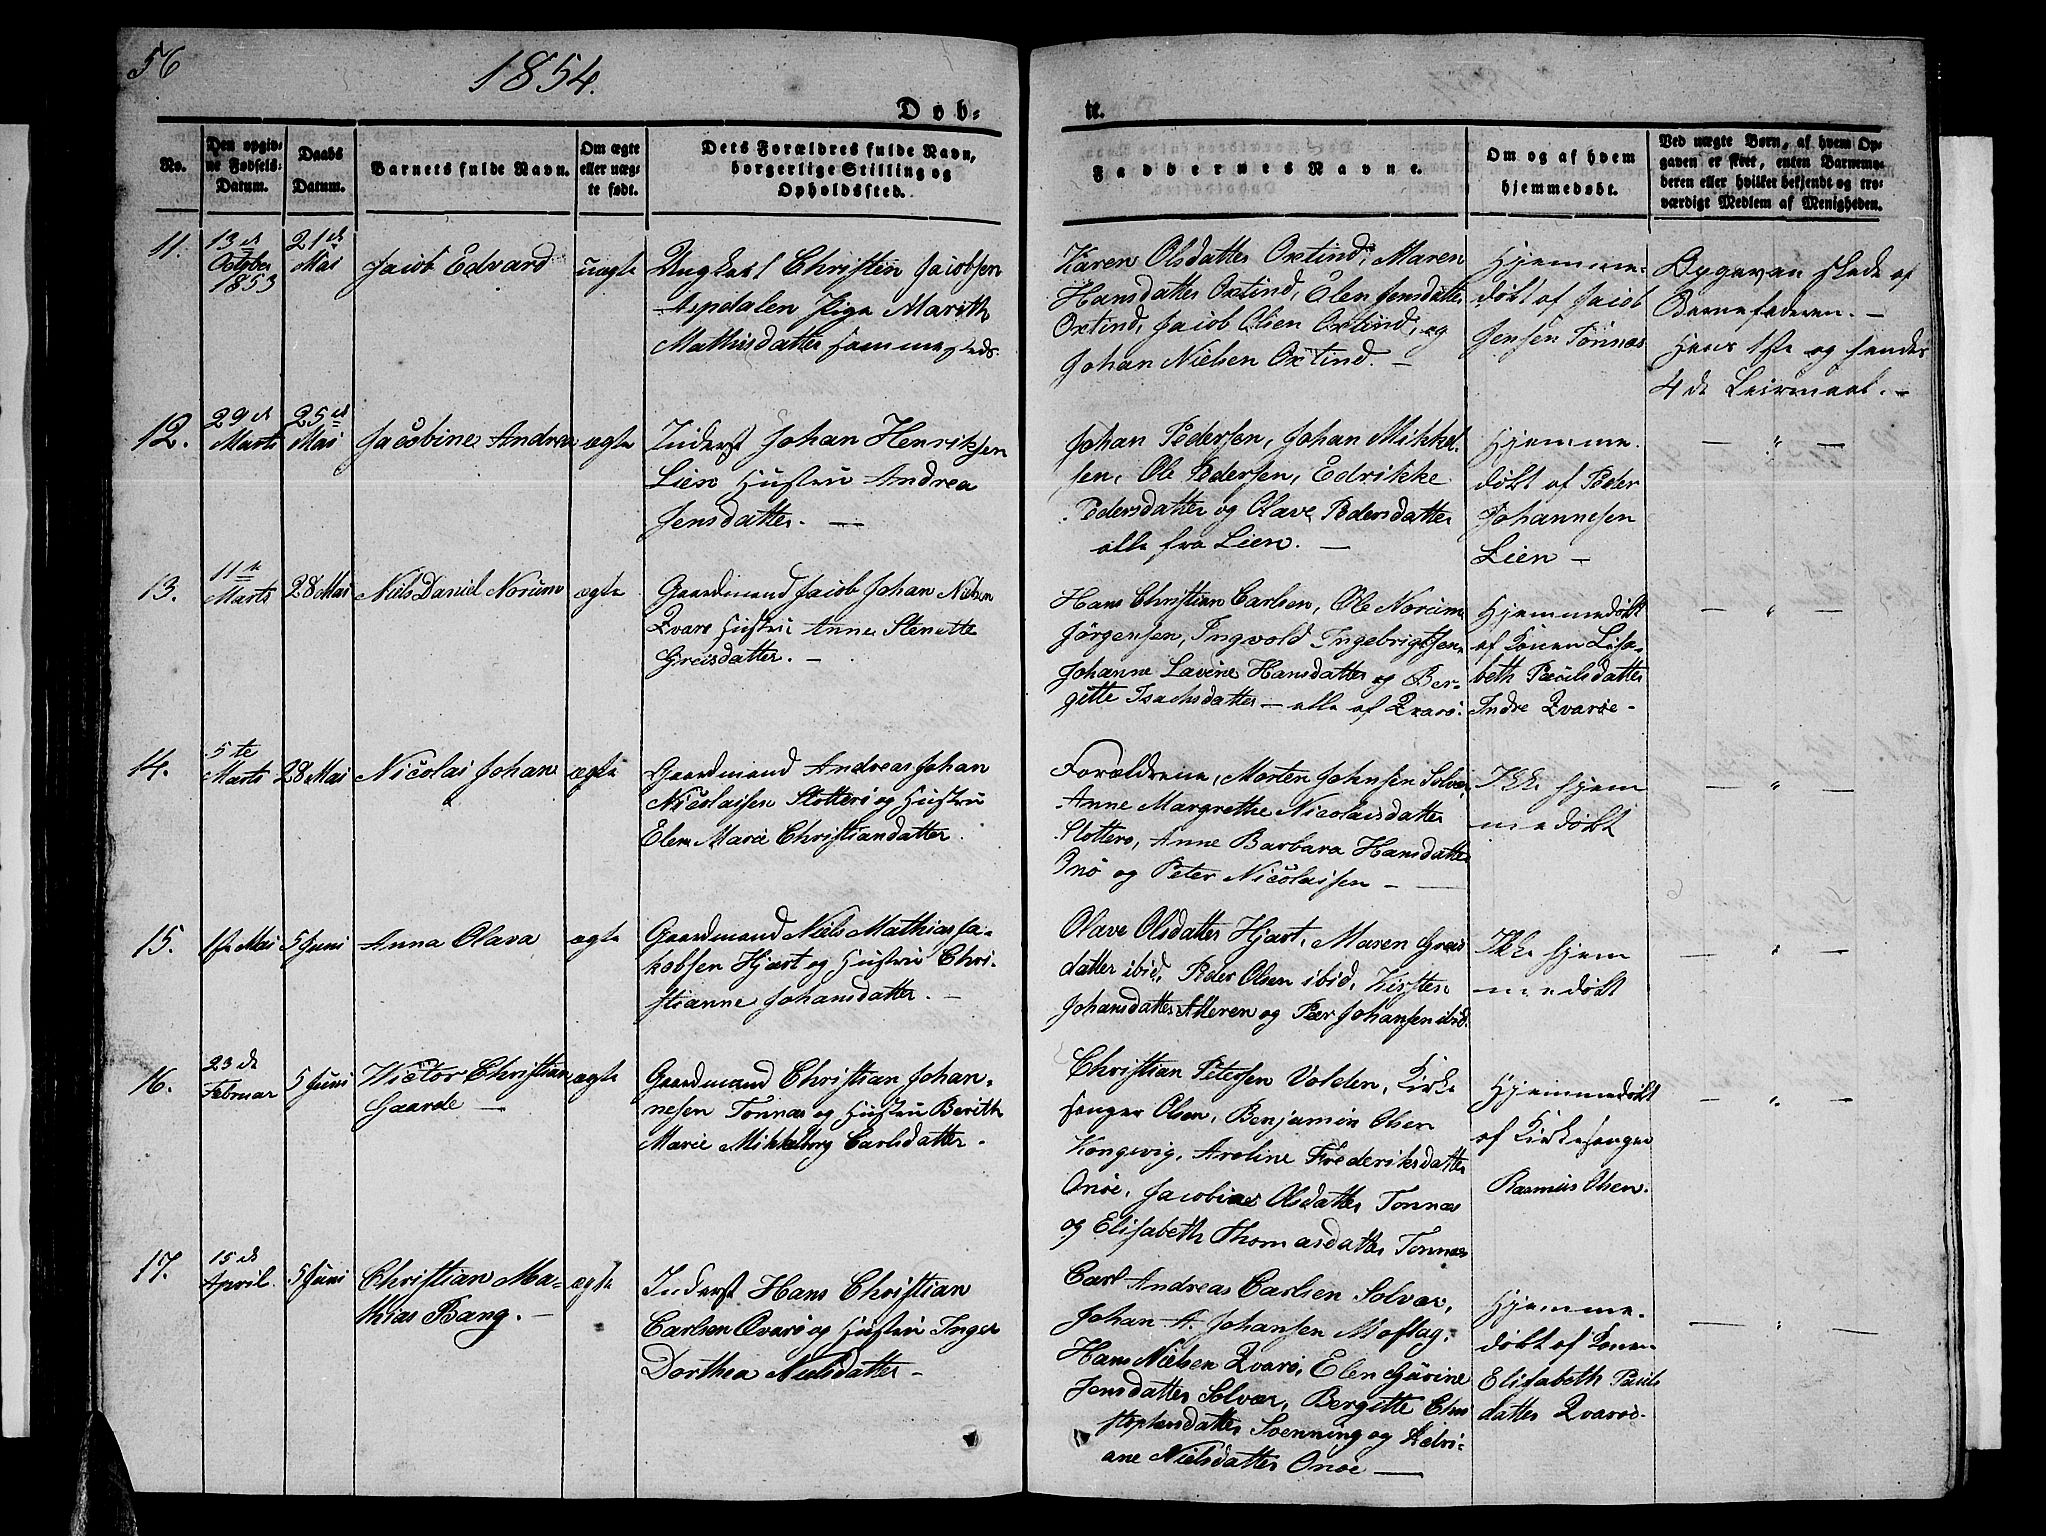 56
1854.
Døb-
te.
No.
Den opgiv-
ne Fødsels-
Datum.
Daabs
Datum.
Barnets fulde Navn.
Om ægte
eller uæg-
te født.
Dets Forældres fulde Navn,
borgerlige Stilling og
Opholdssted.
Faddernes Navne.
Om og af hvem
hjemmedøbt.
Ved uægte Børn, af hvem Op-
gaven er skeet, enten Barnemo-
deren eller hvilket bekjendt og tro-
værdigt Medlem af Menigheden.
11.
13de
October
1853
21de
Mai
Jacob Edvard
uægte
Ungkarl Christen Jacobsen
Aspdalen Pige Marith
Mathisdatter sammesteds.
Karen Olsdatter Oxtind, Maren
Hansdatter Oxtind, Elen Jensdatter
Oxtind, Jacob Olsen Oxtind, og
Johan Nielsen Oxtind. —
Hjemme-
døbt af Jacob
Jensen Tonnæs
Opgaven skede af
Barnefaderen. —
Hans 1ste og hendes
4de Leiermaal. —
12.
29de
Marts
25de
Mai
Jacobine Andrea
ægte
Inderst Johan Henriksen
Lien Hustru Andrea
Jensdatter. —
Johan Pedersen, Johan Mikkel-
sen, Ole Pedersen, Edrikke
Pedersdatter og Olave Pedersdatter
alle fra Lien. —
Hjemme-
døbt af Peder
Johannesen
Lien —
— " —
13.
11te
Marts
28 Mai
Niels Daniel Norum
ægte
Gaardmand Jacob Johan Nielsen
Qvarø Hustru Anne Stenette
Greisdatter. —
Hans Christian Carlsen, Ole Norum
Jørgensen, Ingvold Ingebrigtsen
Johanne Lavine Hansdatter og Ber-
gitte Isachsdatter — alle af Qvarø.
Hjemmedøbt
af Konen Lisa-
beth Paulsdatter
Indre Qvarøe —
— " —
14.
5te
Marts
28 Mai
Nicolai Johan
ægte
Gaardmand Andreas Johan
Nicolaisen Slotterø og Hustru
Elen Marie Christiandatter.
Forældrene, Morten Johnsen Solvær,
Anne Margrethe Nicolaisdatter
Slotterø, Anne Barbara Hansdatter
Onø og Peter Nicolaisen —
Ikke hjem
medøbt
— " —
15.
1ste Mai
5 Juni
Anna Olava
ægte
Gaardmand Niels Mathias Ja-
kobsen Hjart og Hustru Chri-
stianne Johansdatter. —
Olave Olsdatter Hjart, Maren Greis
datter ibid, Peder Olsen ibid, Kirsten
Johansdatter Alteren og Peer Johansen ibid.
Ikke hjem
medøbt
— " —
16.
23de
Februar
5 Juni
Victor Christian
Gaarde —
ægte
Gaardmand Christian Johan-
nesen Tonnæs og Hustru Berith
Marie Mikkelborg Carlsdatter —
Christian Petersen Volden, Kirke
sanger Olsen, Benjamin Olsen
Kongsvig, Aroline Frederiksdatter
Onøe, Jacobine Olsdatter Tonnæs
og Elisabeth Thomasdatter Tonnæs
Hjemmedøbt
af Kirkesanger
Rasmus Olsen.
— " —
17.
15de
April.
5 Juni
Christian Ma-
thias Bang. —
ægte
Inderst Hans Christian
Carlsen Qvarø og Hustru Inger
Dorthea Nielsdatter —
Carl Andreas Carlsen Solvær,
Johan A. Johansen Moflag,
Hans Nielsen Qvarø, Elen Gurine
Jensdatter Solvær, Bergitte Chri
stophersdatter Svenning og Edvi-
ane Nielsdatter Onøe —
Hjemme-
døbt af Konen
Elisabeth Pauls
datter Qvarøe.
— " —